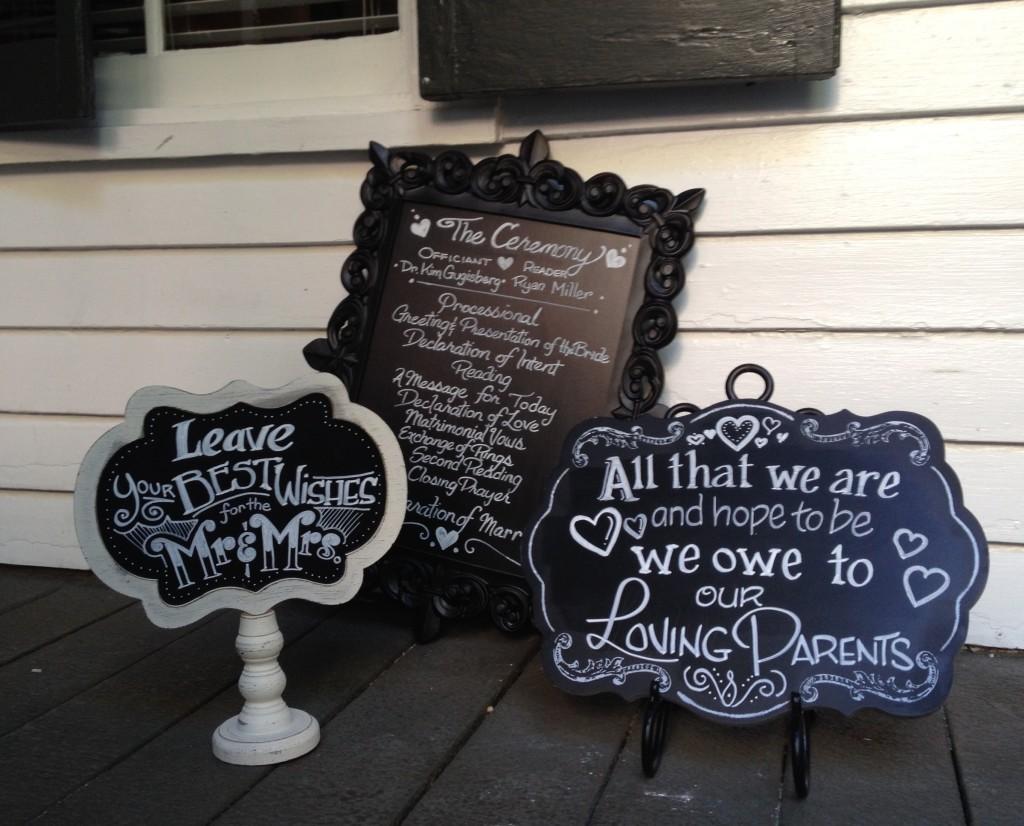 The Ceremony
Officiant Reader
Dr. Kim Gugisberg Ryan Miller
Processional
Greeting & Presentation of the Bride
Declaration of Intent
Reading
A Message for Today
Declaration of Love
Matrimonial Vows
Exchange of Rings
Second Reading
Closing Prayer
aration of Marr
Leave
Your Best Wishes
for the
Mr & Mrs.
All that we are
and hope to be
we owe to
our
Loving Parents